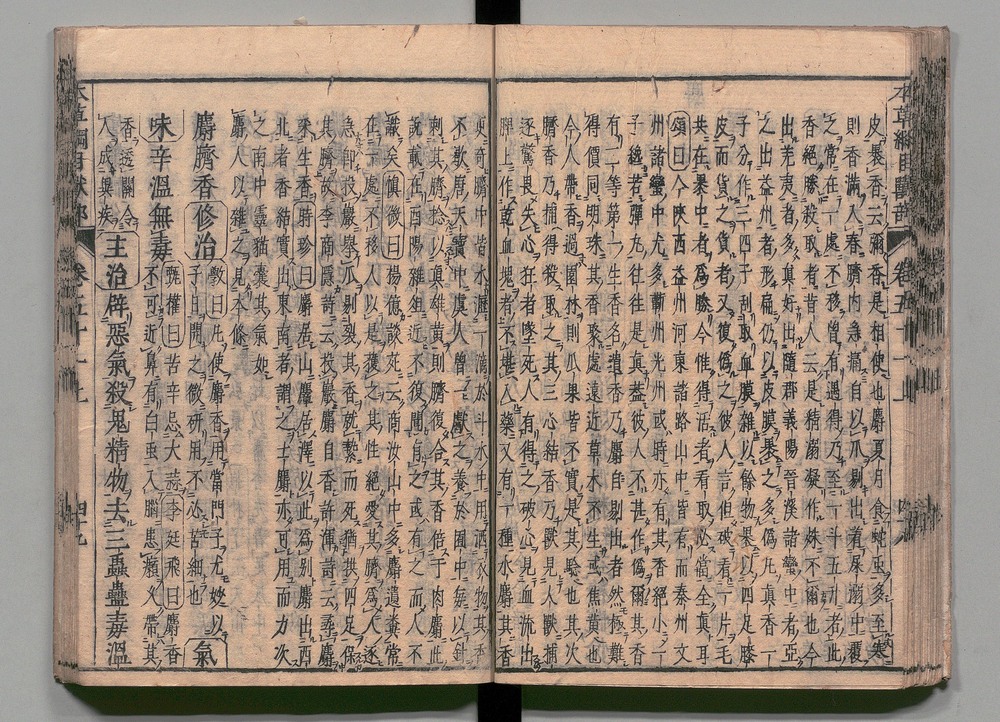 皮裹香云彌香是相使也麝夏月食蛇虫多至寒
則香滿入春臍內急痛自以爪剔出着屎溺中覆
之常在一處不移曾有遇得乃至一斗五升者此
香絕勝殺取者昔人云是精溺凝作殊不爾也今
出羌夷者多真好出隨郡義陽晉溪諸蠻中者亞
之出益州者形扁仍以皮膜裹之多偽凡真香一
子分作三四子刮取血膜雜以餘物裹以四足膝
皮而貨之貨者又復偽之彼人言但破看一片毛
共在裹中者爲勝今惟得活者看取必當全真耳
頌曰今陝西益州河東諸路山中皆有而秦州文
州諸蠻中尤多蘄州光州或時亦有其香絕小一
子纔若彈丸往往是真益彼人不甚作偽爾其香
有二等第一生香名遺香乃麝自剔出者然極難
得價同明珠其香聚處遠近草木不生或焦黄也
今人帶香過園林則瓜果皆不實是其驗也其次
臍香乃捕得殺取之其三心結香乃麝見大獸捕
逐驚畏失心狂走墜死人有得之破心見血流出
脾上作乾血塊者不堪入藥又有一種水麝其香
更奇臍中皆水瀝一滴於斗水中用洒衣物其香
不歇唐天寶中虞人曾一獻之養於囿中每以針
刺其臍捻以真雄黄則臍復合其香倍于肉麝此
說載在酉陽雜俎近不復聞有之或有而人不
識矣慎微曰楊億談苑云商汝山中多麝遺糞常
在一處不移人以是獲之其性絕愛其臍爲人逐
急即投巖舉爪剔裂其香就縶而死猶拱四足保
其臍故李商隱詩云投巖麝自香許渾詩云尋麝
采生香時珍曰麝居山麞居澤以此爲別麝出西
北者香結實出東南者謂之土麝亦可用而力次
之南中靈猫囊其氣如
麝人以雜之見本條
麝臍香修治
斆曰凡使麝香用當門子尤妙以
子日開之微研用不必苦細也
氣
味辛溫無毒
甄權曰苦辛忌大蒜李廷飛曰麝香
不可近鼻有白虫入腦患癩久帶其
香透關令
人成異疾
主治辟惡氣殺鬼精物去三蟲蠱毒溫